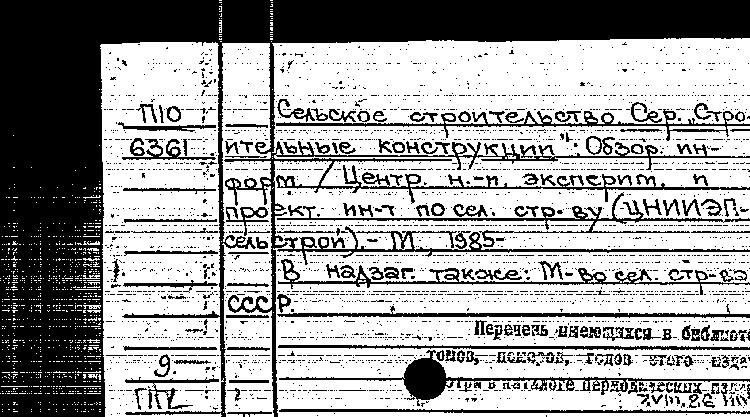 П10 Сельское строительство. Сер. „Стро-
6361 ительные конструкции": Обзор. ин-
форм. / Центр. н.-и. эксперим. и
проект. ин-т по сел. стр-ву (ЦНИИЭП-
сельстрой). - М., 1985-
В надзаг. также: М-во сел. стр-ва
СССР.
Перечень имеющихся в библиоте
томов, номеров, годов этого изда
9.
отра в каталоге периодических изда